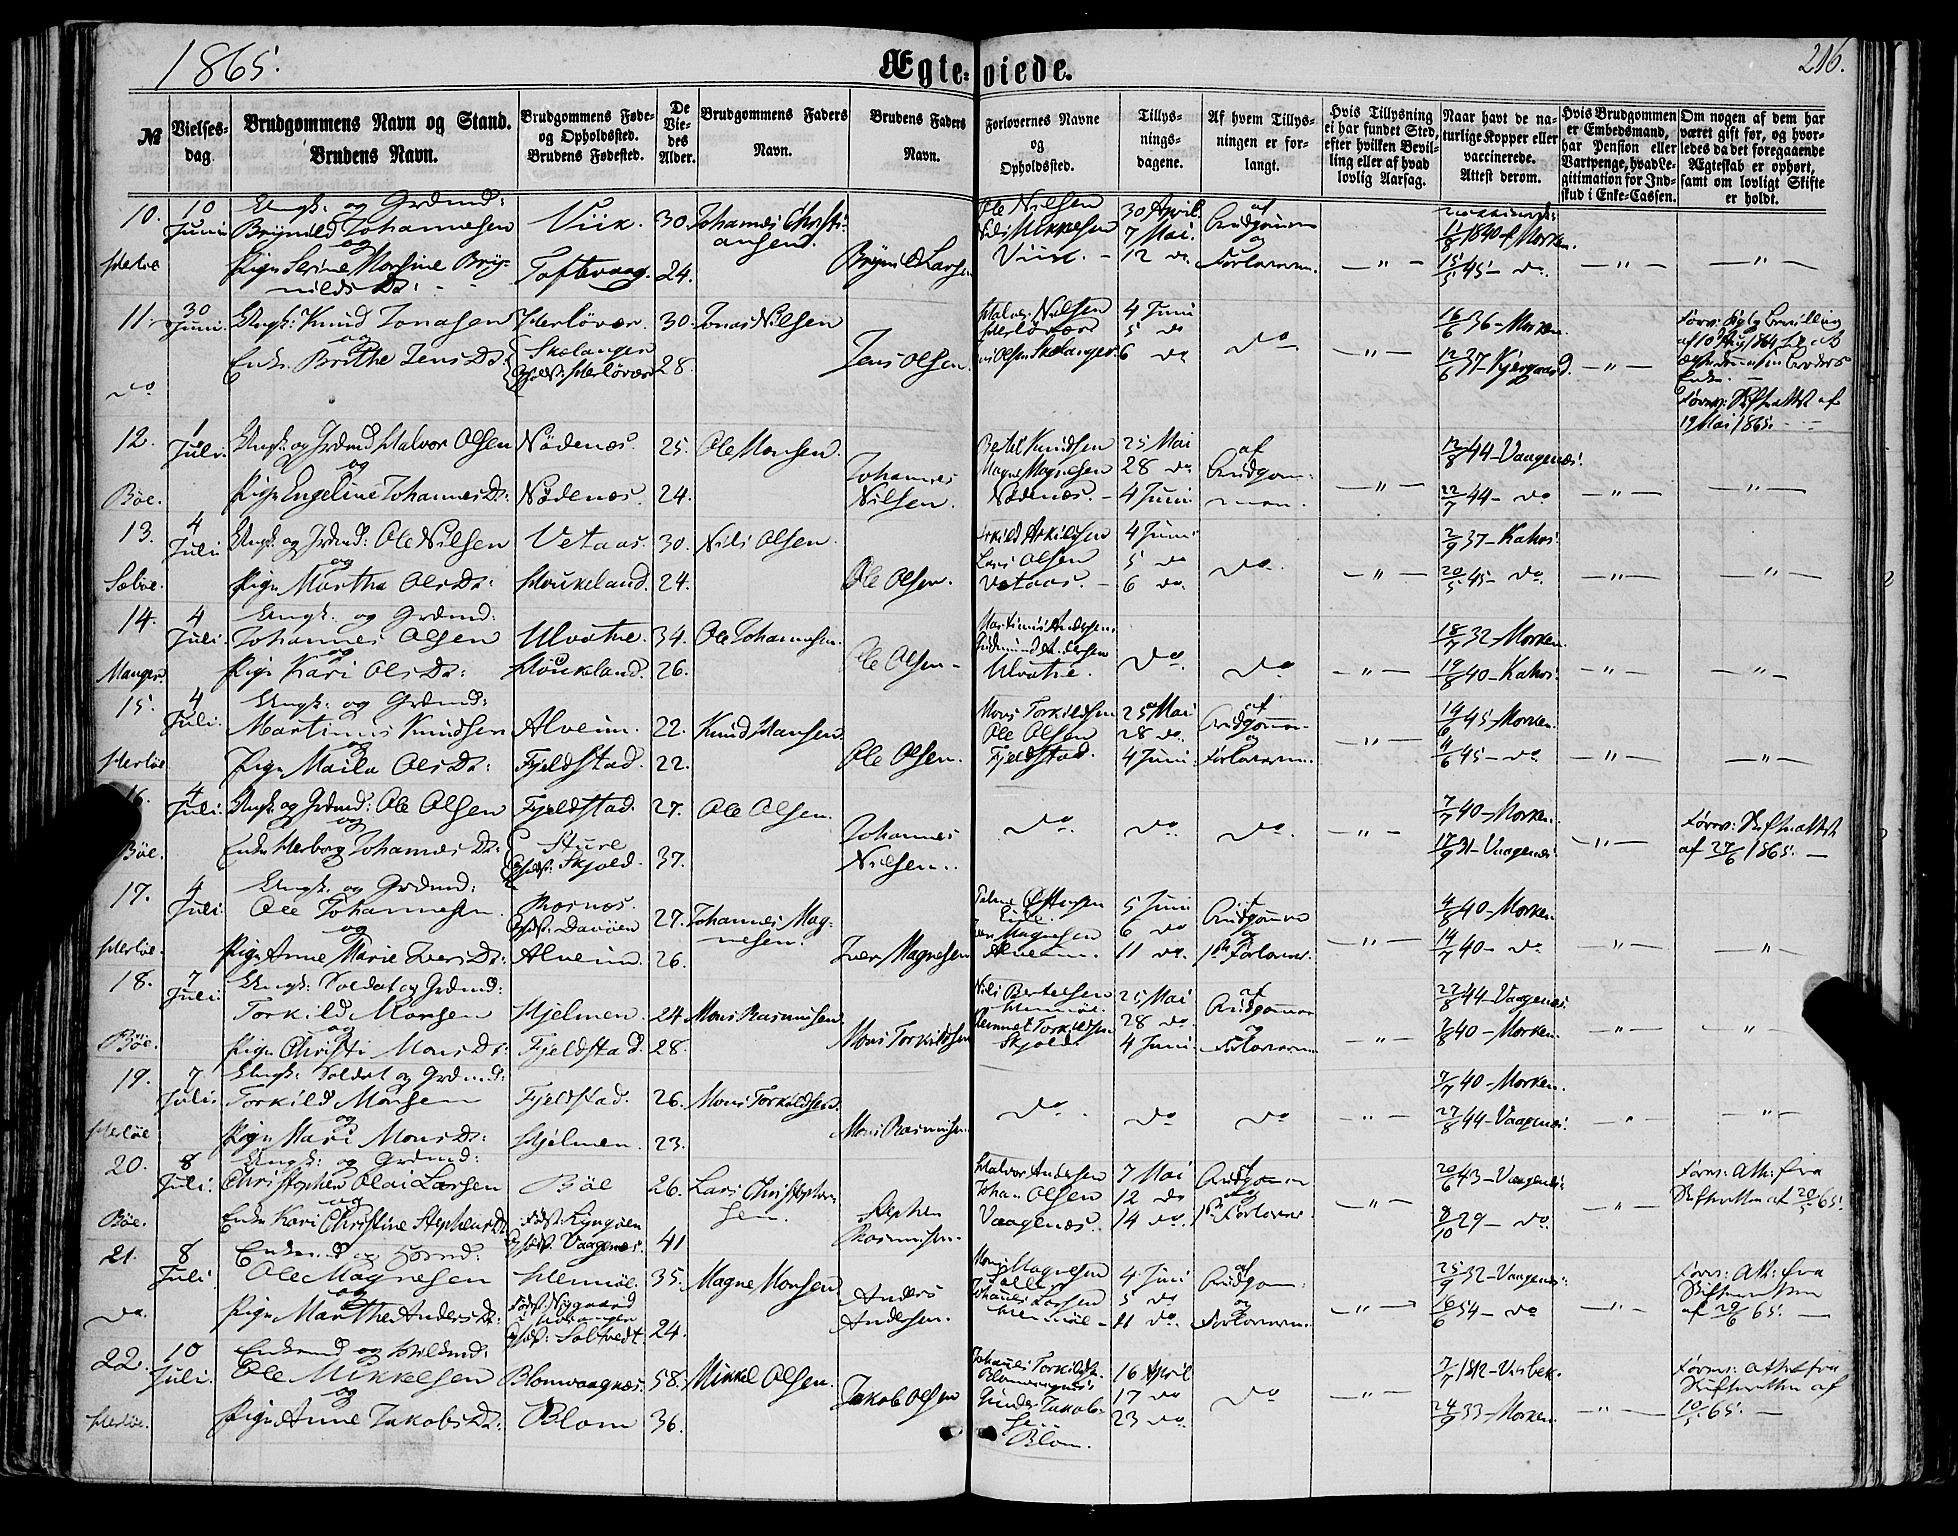 1865.
Ægteviede.
216.
№
Vielses-
dag.
Brudgommens Navn og Stand.
Brudens Navn.
Brudgommens Føde-
og Opholdssted.
Brudens Fødested.
De
Vie-
des
Alder.
Brudgommens Faders
Navn.
Brudens Faders
Navn.
Forlovernes Navne
og
Opholdssted.
Tillys-
nings-
dagene.
Af hvem Tillys-
ningen er for-
langt.
Hvis Tillysning
ei har fundet Sted,
efter hvilken Bevil-
ling eller af hvad
lovlig Aarsag.
Naar havt de na-
turlige Kopper eller
vaccinerede.
Attest derom.
Hvis Brudgommen
er Embedsmand,
har Pension eller
Vartpenge, hvad Le-
gitimation for Ind-
skud i Enke-Cassen.
Om nogen af dem har
været gift før, og hvor-
ledes da det foregaaende
Ægteskab er ophørt,
samt om lovligt Skifte
er holdt.
10. 10 Juni Ungk: og Grdmd:
Brynild Johannesen Viik. 30. Johannes Christiansen. Ole Nilsen 30 April af Brudgommen
og Nils Mikkelsen 7 Mai. og 11/8 1840 Morken.
Herløe Pige Serine Morsine Brynilds Dr: Toftevaag. 24. Brynild Larsen Viik. 12 do. Forloveren. — " — 15/5 45 — do. — " — — " —
11. 30 Juni. Ungk: Knud Jonasen Herløvær. 30. Jonas Nilsen Nilsen 4 Juni 16/6 36 — Morken.
og Herløvær 5 do
do Enke Brithe Jens Dr: Skelanger Opholdst: Herløvær 28. Jens Olsen. Olsen Skelanger. 6 do do — " — 12/6 37 — Kjergaard. — " —
af 10 Aug 1864
Enke.
19 Mai 1865.
12. 1 Juli. Ungk: og Grdmd Halvor Olsen Nødenæs. 25. Ole Monsen. Bertel Knudsen 25 Mai af 12/8 44 — Vaagenæs.
og Magne Magnesen 28 do Brudgommen.
Bøe. Pige Engeline Johannes Dr: Nødenæs. 24. Johannes Nilsen. Nødenæs. 4 Juni — " — 22/7 44 — do — " — — " —
13. 4 Juli Ungk: og Grdmd: Ole Nilsen Vetaas. 30. Nils Olsen. Arkild Arkildsen 4 Juni 2/9 37 — Kahrs.
og Lars Olsen 5 do
Sæbøe. Pige Martha Ols Dr: Houkeland. 24. Ole Olsen. Vetaas. 6 do. do. — " — 20/5 45 — do. — " — — " —
14. 4 Juli Ungk: og Grdmd:
Johannes Olsen Ulvatne. 34. Ole Johannesen. Martinus Andersen 18/7 32 — Morken.
og
Manger. Pige Kari Ols Dr: Houkland. 26. Ole Olsen Ulvatne. do. do — " — 19/8 40 — Kahrs. — " — — " —
15. 4 Juli. Ungk: og Grdmd:
Martinus Knudsen Alveim. 22. Knud Hansen. Mons Torkildsen 25 Mai af Brudgommen 14/6 45 — Morken.
og Ole Olsen 28 do. og
Herløe Pige Maila Ols Dr: Fjeldstad. 22. Ole Olsen. Fjeldstad. 4 Juni Forloveren. — " — 4/6 45 — do — " — — " —
16. 4 Juli. Ungk: og Grdmd: Ole Olsen Fjeldstad. 27. Ole Olsen. 7/7 40 — Morken.
og
Bøe. Enke Herborg Johannes Dr: Sture Opholdst: Skjold. 37. Johannes Nilsen. do. do. do. — " — 17/9 31 — Vaagenæs. — " — Forev: Skifteattest
af 27/6 1865. —
17. 4 Juli Ungk: og Grdmd:
Ole Johannesen. Opholdst: Davøen 27. Johannes Magnesen. 5 Juni Brudgommen 4/8 40 — Morken
og Magnesen 6 do og
Herløe. Pige Anne Marie Ivers Dr: Alveim. 26. Iver Magnesen Alveim. 11 do. 1ste Forlover. — " — 14/7 40 — do — " — "
18. 7 Juli. Ungk: Soldat og Grdmd:
Torkild Monsen Hjelmen. 24. Mons Rasmusen. Nils Bertelsen 25 Mai af Brudgommen 22/8 44 — Vaagenæs.
og Torkildsen 28 do. og
Bøe. Pige Christi Mons Dr: Fjeldstad. 28. Mons Torkildsen Skjold. 4 Juni. Forloveren — " — 7/8 40 — Morken. — " — "
19. 7 Juli. Ungk: Soldat og Grdmd:
Torkild Monsen Fjeldstad. 26. Mons Torkildsen. 7/7 40 — Morken.
og
Herløe Pige Mari Mons Dr: Hjelmen. 23. Mons Rasmusen. do. do do — " — 27/8 44 — Vaagenæs. — " — — " —
20. 8 Juli. Ungk: og Grdmd:
Christopher Olai Larsen Bøe 26. Lars Christophersen. Halvor Andersen 7 Mai Brudgommen 20/6 43 — Vaagenæs. Forev: Att: fra
og Johan Olsen 12 do og Skifteretten af 20/5 65.
Bøe. Enke Kari Christine Stephens Dr: Fødst: Lyngøen Opholdst: Vaagenæs. 41 Stephen Rasmusen. Vaagenæs. 14 do. 1ste Forlover. — " — 8/10 29 — do — " —
21. 8 Juli Enkemd og
Ole Magnesen Hennøe. 35. Magne Monsen Mons Magnesen 4 Juni af Brudgom: 25/9 32 — Vaagenæs. Forev: Att: fra
og Johannes Larsen 5 do og Skifteretten
do. Pige Marthe Anders Dr: Fødst: Nygaard Opholdst: Soltvedt. 24. Anders Andersen. Hennøe 11 do. Forloveren. — " — 16/6 54 — do — " — af 20/6 65. —
22. 10 Juli. Enkemd og
Ole Mikkelsen Blomvaagnæs. 58. Mikkel Olsen. Johannes Torkildsen 16 April 7/7 1812 Forev: attest fra
og Blomvaagnæs 17 do Skifteretten af
Herløe. Pige Anne Jakobs Dr: Blom 36. Jakob Olsen Gunder Jakobsen 23 do. do — " — 24/9 33 — Morken. — " — 10/5 65. —
Blom.